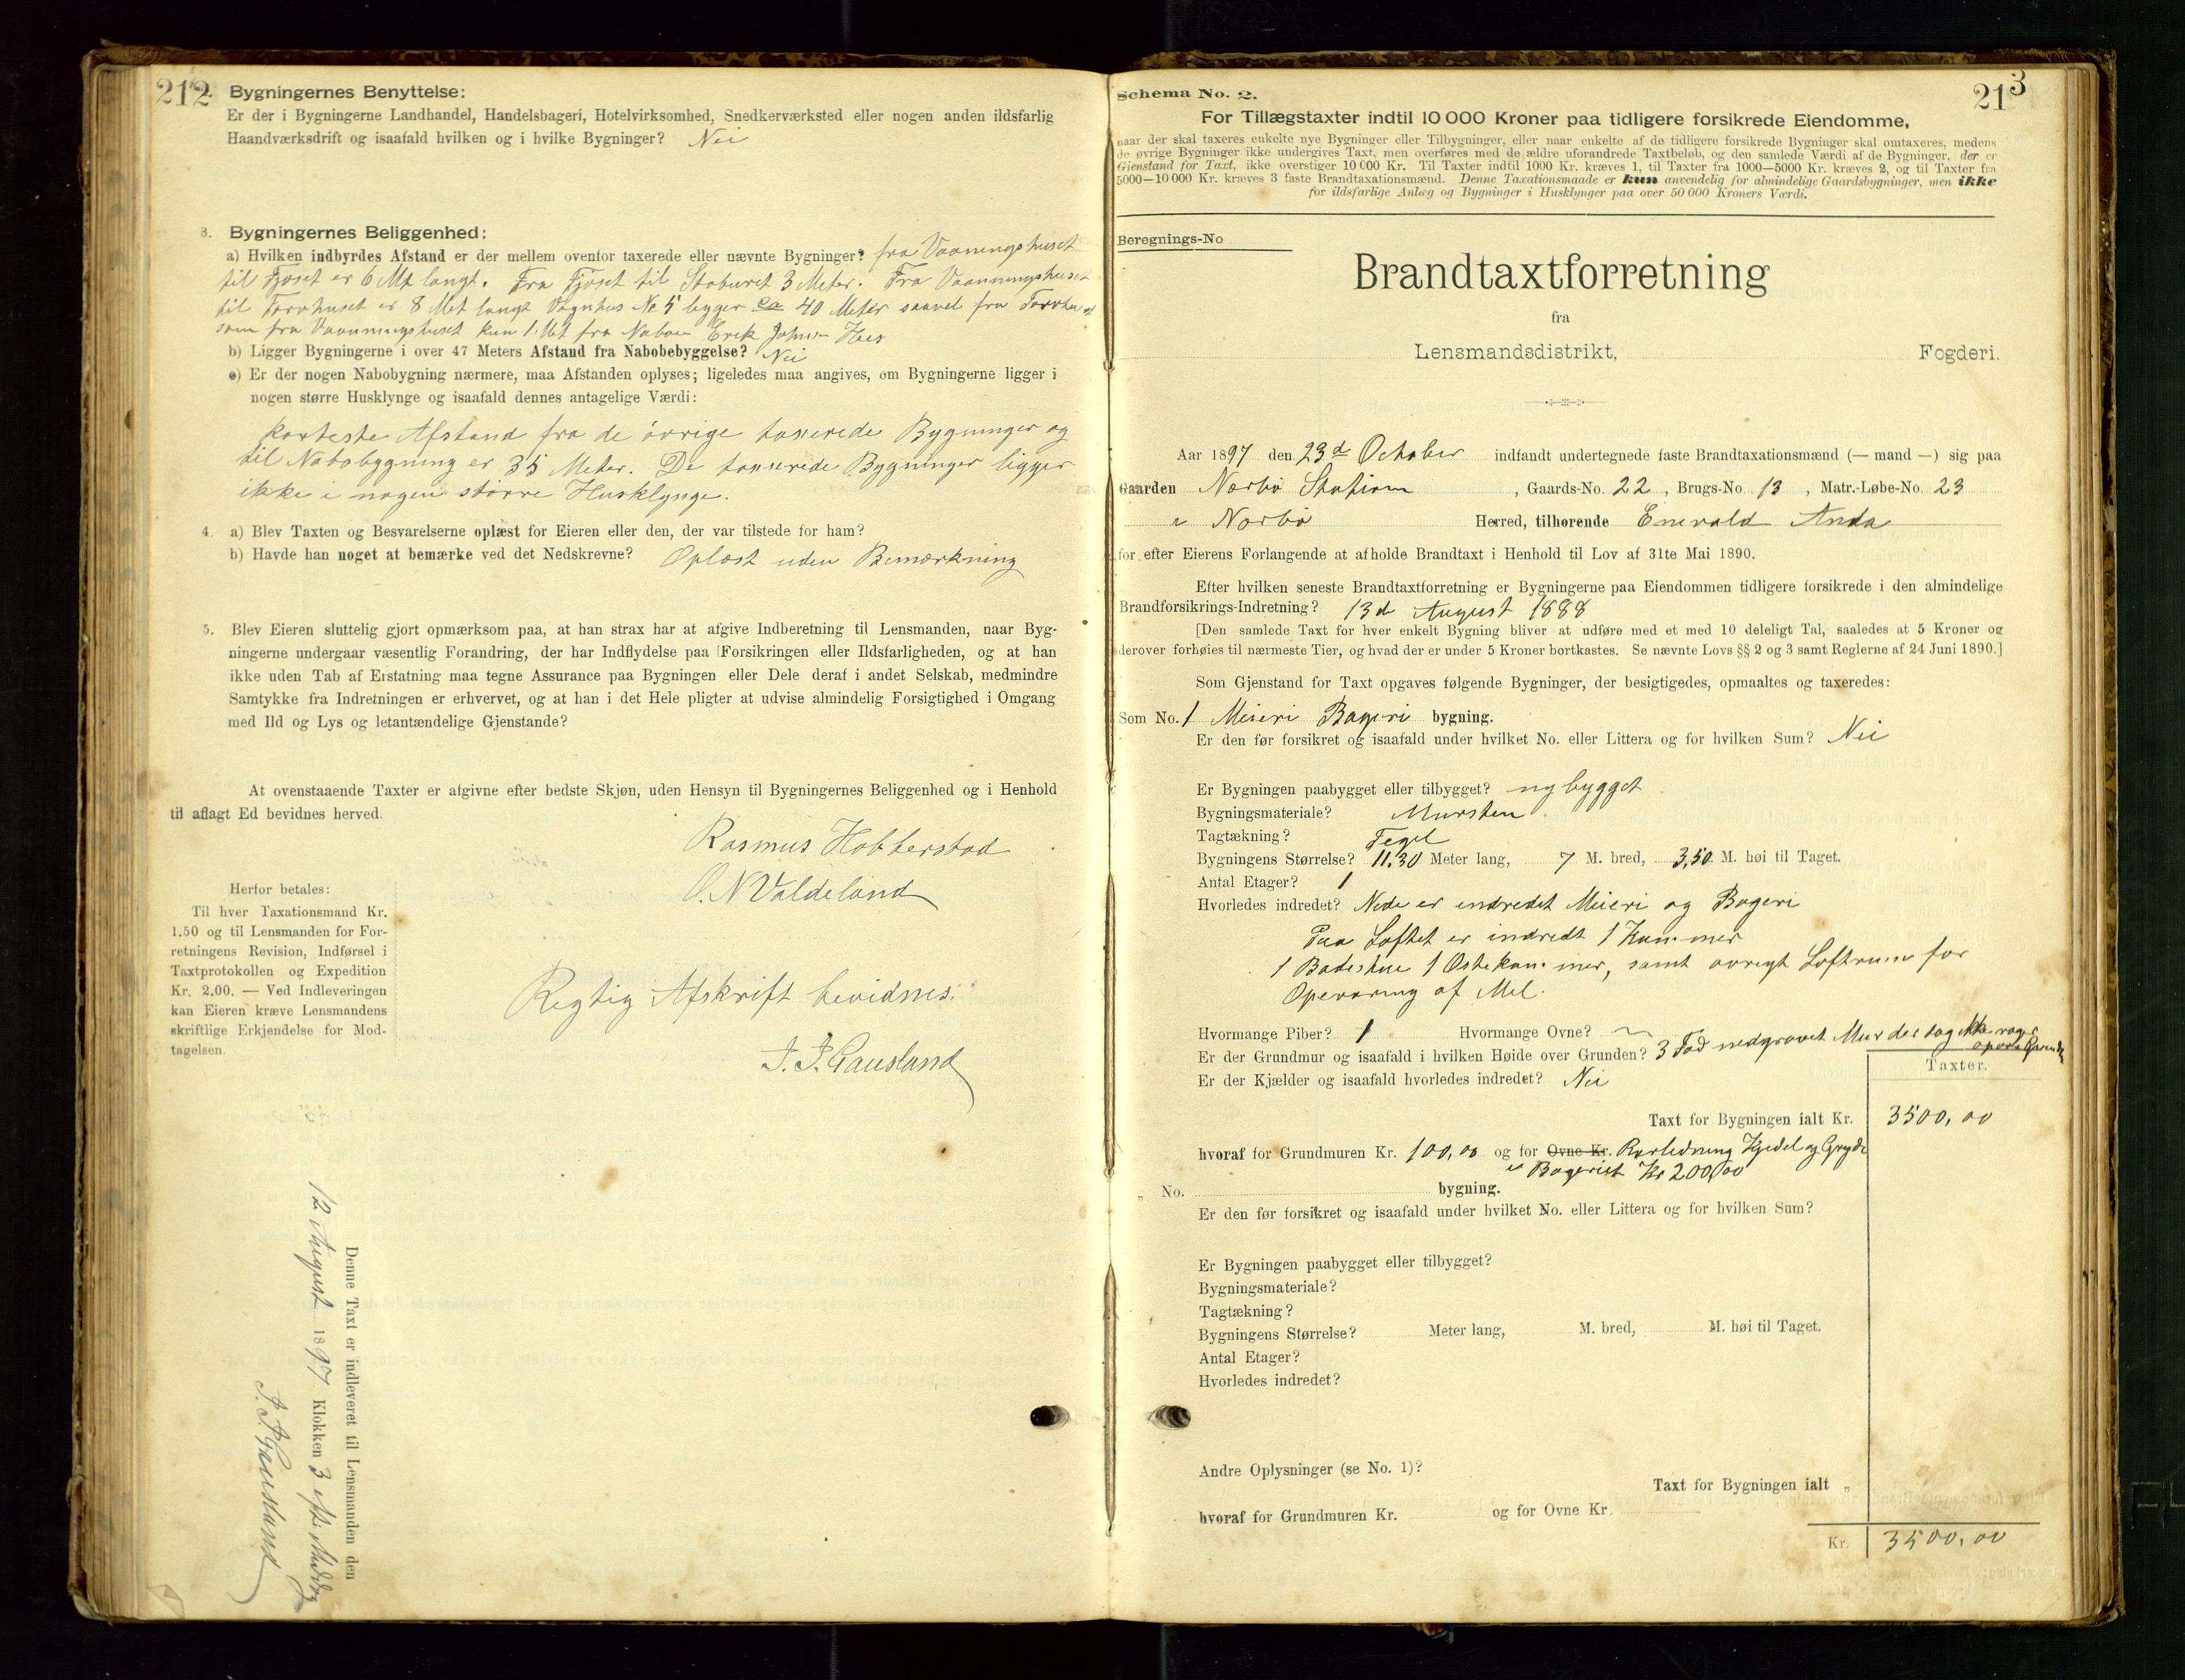 212
Bygningernes Benyttelse:
Er der i Bygningerne Landhandel, Handelsbageri, Hotelvirksomhed, Snedkerværksted eller nogen anden ildsfarlig
Haandværksdrift og isaafald hvilken og i hvilke Bygninger? Nei
3. Bygningernes Beliggenhed:
a) Hvilken indbyrdes Afstand er der mellem ovenfor taxerede eller nævnte Bygninger? fra Vaaningshuset
til Fjøset er 6 Mt langt. Fra Fjøset til Staburet 3 Meter. Fra Vaaningshuset
til Torvhuset er 8 Met langt Vognhus No 5 ligger ca 40 Meter saavel fra Torvhuset
som fra Vaaningshuset kun 1 Mt fra Naboen Erik Johns Hus
b) Ligger Bygningerne i over 47 Meters Afstand fra Nabobebyggelse? Nei
c) Er der nogen Nabobygning nærmere, maa Afstanden oplyses; ligeledes maa angives, om Bygningerne ligger i
nogen større Husklynge og isaafald dennes antagelige Værdi:
korteste Afstand fra de øvrige taxerede Bygninger og
til Nabobygning er 35 Meter. De taxerede Bygninger ligger
ikke i nogen større Husklynge.
4. a) Blev Taxten og Besvarelserne oplæst for Eieren eller den, der var tilstede for ham?
b) Havde han noget at bemærke ved det Nedskrevne? Oplæst uden Bemærkning
5. Blev Eieren sluttelig gjort opmærksom paa, at han strax har at afgive Indberetning til Lensmanden, naar Byg-
ningerne undergaar væsentlig Forandring, der har Indflydelse paa Forsikringen eller Ildsfarligheden, og at han
ikke uden Tab af Erstatning maa tegne Assurance paa Bygningen eller Dele deraf i andet Selskab, medmindre
Samtykke fra Indretningen er erhvervet, og at han i det Hele pligter at udvise almindelig Forsigtighed i Omgang
med Ild og Lys og letantændelige Gjenstande?
At ovenstaaende Taxter er afgivne efter bedste Skjøn, uden Hensyn til Bygningernes Beliggenhed og i Henhold
til aflagt Ed bevidnes herved.
Rasmus Hobberstad
O. N Valdeland
Herfor betales:
Til hver Taxationsmand Kr.
1.50 og til Lensmanden for For-
retningens Revision, Indførsel i
Taxtprotokollen og Expedition
Kr. 2.00. — Ved Indleveringen
kan Eieren kræve Lensmandens
skriftlige Erkjendelse for Mod-
tagelsen.
Rigtig Afskrift bevidnes.
J. J. Gausland
Denne Taxt er indleveret til Lensmanden den
12 August 1897 Klokken 3 eft. Middag
J. J. Gausland
213
Schema No. 2.
For Tillægstaxter indtil 10 000 Kroner paa tidligere forsikrede Eiendomme,
naar der skal taxeres enkelte nye Bygninger eller Tilbygninger, eller naar enkelte af de tidligere forsikrede Bygninger skal omtaxeres, medens
de øvrige Bygninger ikke undergives Taxt, men overføres med de ældre uforandrede Taxtbeløb, og den samlede Værdi af de Bygninger, der er
Gjenstand for Taxt, ikke overstiger 10 000 Kr. Til Taxter indtil 1000 Kr. kræves 1, til Taxter fra 1000—5000 Kr. kræves 2, og til Taxter fra
5000—10 000 Kr. kræves 3 faste Brandtaxationsmænd. Denne Taxationsmaade er kun anvendelig for almindelige Gaardsbygninger, men ikke
for ildsfarlige Anlæg og Bygninger i Husklynger paa over 50 000 Kroners Værdi.
Beregnings-No
Brandtaxtforretning
fra
Lensmandsdistrikt, Fogderi.
Aar 1897 den 23d October indfandt undertegnede faste Brandtaxationsmænd (— mand —) sig paa
Gaarden Nærbø Station, Gaards-No. 22, Brugs-No. 13, Matr.-Løbe-No. 23
i Nærbø Herred, tilhørende Enevald Anda
for efter Eierens Forlangende at afholde Brandtaxt i Henhold til Lov af 31te Mai 1890.
Efter hvilken seneste Brandtaxtforretning er Bygningerne paa Eiendommen tidligere forsikrede i den almindelige
Brandforsikrings-Indretning? 13d August 1888
[Den samlede Taxt for hver enkelt Bygning bliver at udføre med et med 10 deleligt Tal, saaledes at 5 Kroner og
derover forhøies til nærmeste Tier, og hvad der er under 5 Kroner bortkastes. Se nævnte Lovs §§ 2 og 3 samt Reglerne af 24 Juni 1890.]
Som Gjenstand for Taxt opgaves følgende Bygninger, der besigtigedes, opmaaltes og taxeredes:
Som No. 1 Meieri Bageri bygning.
Er den før forsikret og isaafald under hvilket No. eller Littera og for hvilken Sum? Nei
Er Bygningen paabygget eller tilbygget? ny bygget
Bygningsmateriale? Mursten
Tagtækning? Tegl
Bygningens Størrelse? 11.30 Meter lang, 7 M. bred, 3,50 M. høi til Taget.
Antal Etager? 1
Hvorledes indredet? Nede er indredet Meieri og Bageri
Paa Loftet er indredt 1 Kammer
1 Badestue 1 Ostekammer, samt øvrigt Loftrum for
Opevaring af Mel.
Hvormange Piber? 1 Hvormange Ovne? ~
Er der Grundmur og isaafald i hvilken Høide over Grunden? 3 Fod nedgravet Mur der dog ikke rager
op over Grunden
Er der Kjælder og isaafald hvorledes indredet? Nei
Taxter.
Taxt for Bygningen ialt Kr. 3500,00
hvoraf for Grundmuren Kr. 100,00 og for Ovne Kr. Rørledning Kjedel og Gryde
i Bageriet Kr 200,00
„ No. bygning.
Er den før forsikret og isaafald under hvilket No. eller Littera og for hvilken Sum?
Er Bygningen paabygget eller tilbygget?
Bygningsmateriale?
Tagtækning?
Bygningens Størrelse? Meter lang, M. bred, M. høi til Taget.
Antal Etager?
Hvorledes indredet?
Andre Oplysninger (se No. 1)?
Taxt for Bygningen ialt „
hvoraf for Grundmuren Kr. og for Ovne Kr.
Kr. 3500,00